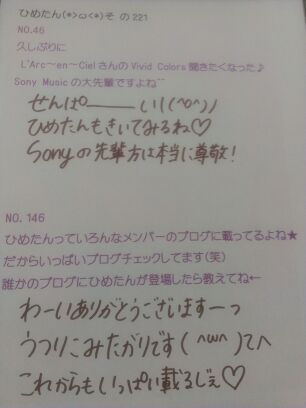 ひめたん(*>ω<*)そ の 221
NO.46
久しぶりに
L'Arc〜en〜CielさんのVivid Colors聞きたくなった♪
Sony Musicの大先輩ですよね^^
せんぱ——い!(^o^)丿
ひめたんもきいてみるね♡
Sonyの先輩方は本当に尊敬!
NO.146
ひめたんっていろんなメンバーのブログに載ってるよね★
だからいっぱいブログチェックしてます(笑)
誰かのブログにひめたんが登場したら教えてね←
わーいありがとうございますーっ
うつりこみたがりです( ^ω^ )てへ
これからもいっぱい載るじぇ♡